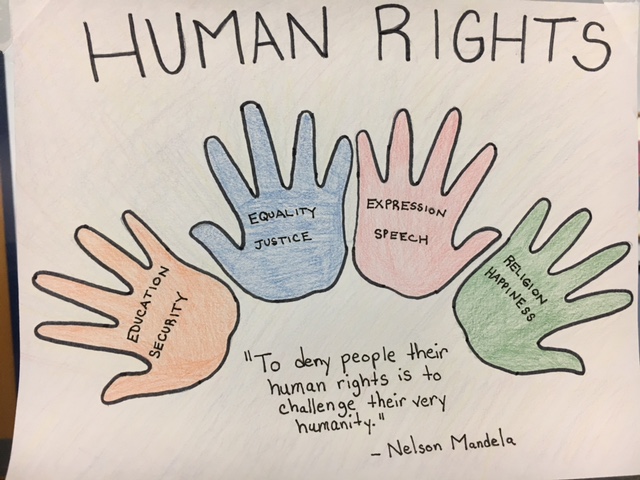 HUMAN RIGHTS
EDUCATION
SECURITY
EQUALITY
JUSTICE
EXPRESSION
SPEECH
RELIGION
HAPPINESS
"To deny people their
human rights is to
challenge their very
humanity."
- Nelson Mandela